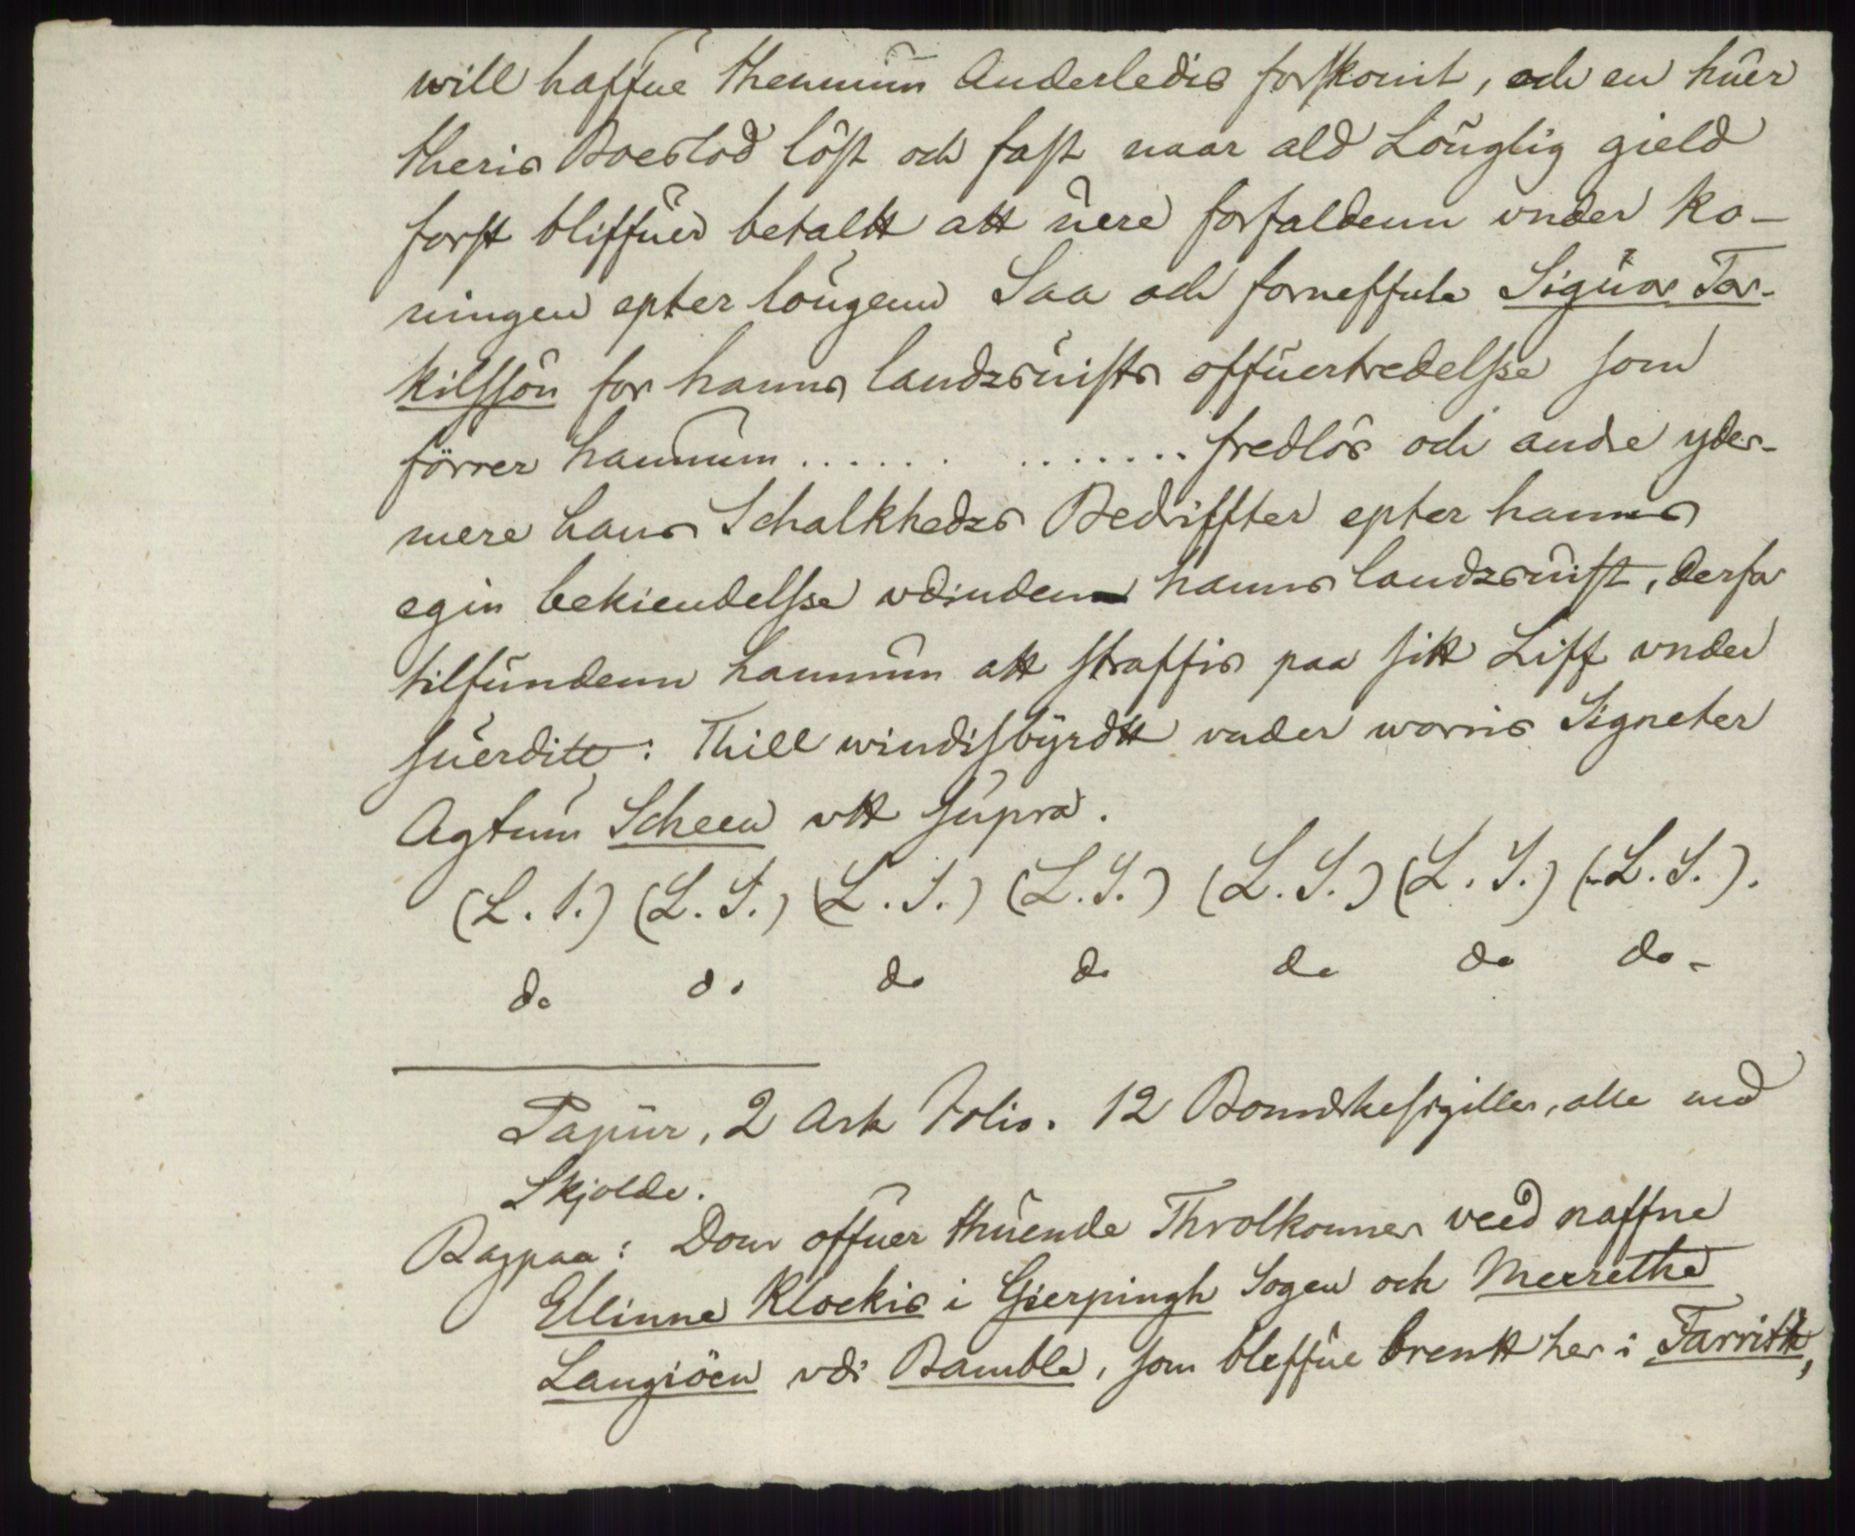 will haffue thennum Anderledis forskomit, och en huer
theris Boeslod löst och fast naar ald Louglig gield
forst bliffuer betaltt att uere forfaldenn vnder ko-
ningen epter lougenn Saa och forneffnte Siguor Tor-
kilssön for hanns landzsuists offuertredelsse som
förrer hannum ...... ....... fredlös och andre yder-
mere hans Schalkhedzs Bedriffter epter hanns
egin bekiendelsse vdindenn hanns landzsuist, derfor
tilfundenn hannum att straffis paa sitt Liff vnder
suerditt: Thill windisbyrdtt vnder worris Signeter
Agtum Scheen vtt supra.
(L. S.) (L. S.) (L. S.) (L. S.) (L. S.) (L. S.) (L. S.).
do do do do do do do-
Papiir, 2 Ark Folio. 12 Bomærkesigiller, alle med
Skjolde.
Bagpaa: Dom offuer thuende Throlkonner veed naffne
Ellinne Klockis i Gierpingh Sogen och Meerethe
Langiöen vdi Bamble, som bleffue brentt her i Farritk,